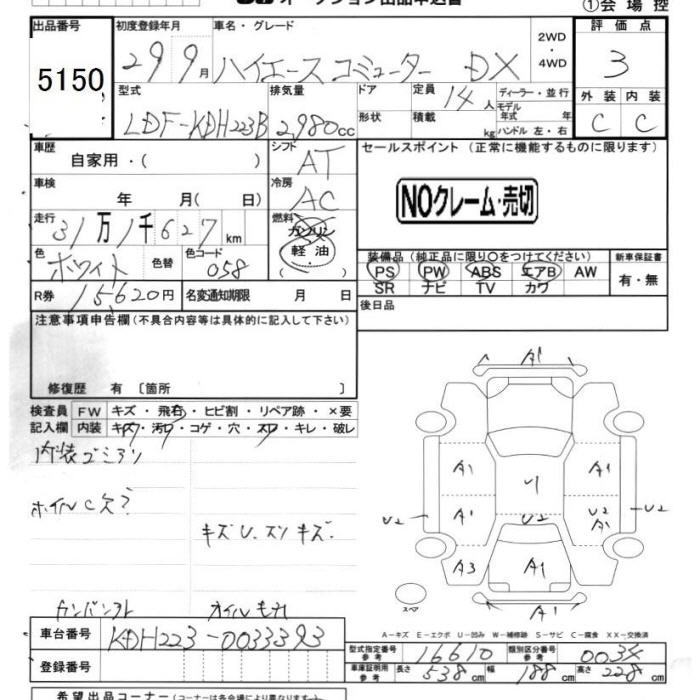 オークション出品申込書 ①会場控
出品番号 初度登録年月 車名・グレード 2WD・4WD 評価点
5150 29 9月 ハイエース コミューター DX 3
型式 排気量 ドア 定員 14人 ディーラー・並行 外装 内装
LDF-KDH223B 2,980cc 形状 積載 kg モデル年式 年 ハンドル 左・右 C C
車歴 自家用・( ) シフト AT セールスポイント (正常に機能するものに限ります)
車検 年 月( 日) 冷房 AC NOクレーム・売切
走行 31万1千627km 燃料 ガソリン 軽・油
色 ホワイト 色替 色コード 058 装備品(純正品に限り○をつけてください) 新車保証書
PS PW ABS エアB AW 有・無
SR ナビ TV カワ
R券 15,620円 名変通知期限 月 日 後日品
注意事項申告欄(不具合内容等は具体的に記入して下さい)
修復歴 有 〔箇所 〕
検査員 FW キズ・飛石・ヒビ割・リペア跡・×要
記入欄 内装 キズ・汚れ・コゲ・穴・スレ・キレ・破レ
内装ゴミアリ
ホイルC欠?
キズU.スリキズ.
オイルモレ
A1
A1 U A1
U2 A1 U2 U2 A1 U2
A3 A1
スペア A1
A-キズ E-エクボ U-凹み W-補修跡 S-サビ C-腐食 XX-交換済
車台番号 KDH223-0033393
型式指定番号 参考 16610 類別区分番号 参考 0034
登録番号 車庫証明用 参考 長さ 538cm 幅 188cm 高さ 228cm
希望出品コーナー(コーナーは各会場により異なります)